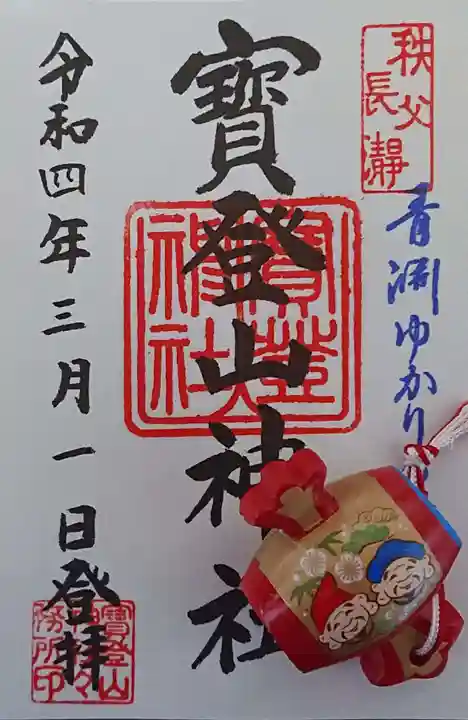 秩父
長瀞
青淵ゆかり
寳登山神社
寳登山
神社
令和四年三月一日登拝
寳登山
神社々
務所印